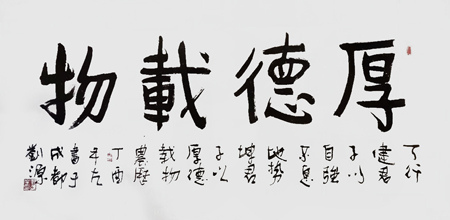 厚德載物
天行
健君
子以
自強
不息
地勢
坤君
子以
厚德
載物
農歷
丁酉
年
書于
成都
劉源